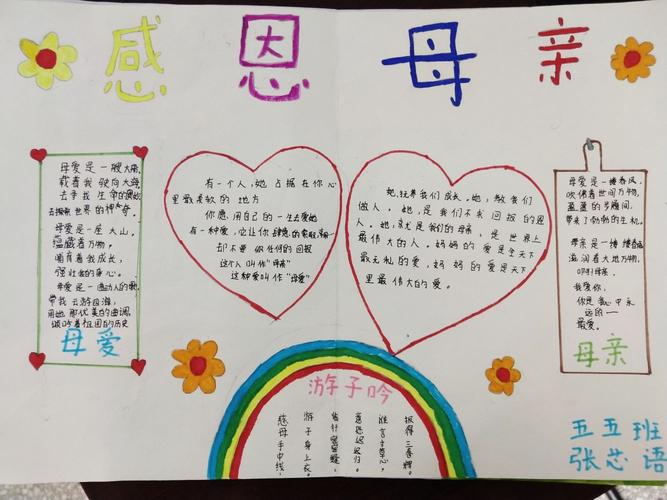 感恩母亲
母爱是一艘大船,
载着我驶向大海
去寻我生命的
去探索世界的神奇。
母爱是一座大山,
蕴藏着万物,
哺育着我成长,
强壮着身心。
母爱是一曲动人的歌,
带我云游四海,
用她那优美的曲调,
颂吟着祖国的历史
母爱
有一个人,她占据在你心
里最柔软的地方
你愿用自己的一生去爱她
有一种爱,它让你肆意的索取,
却不要你任何的回报
这个人叫作“母亲”
这种爱叫作“母爱”
她,抚养我们成长。她,教我们
做人。她,是我们不求回报的恩
人。她,就是我们的母亲,是世界上
最伟大的人。妈妈的爱是天下
最无私的爱,妈妈的爱是天下
里最伟大的爱。
母爱是一捧春风,
吹拂着世间万物,
盈盈的步履间,
带来了勃勃的生机。
母亲是一捧
滋润着大地万物,
母亲,
我爱你,
你是我心中永
远的一
最爱。
母亲
游子吟
慈母手中线,
游子身上衣。
临行密密缝,
意恐迟迟归。
谁言寸草心,
报得三春晖。
五五班
张芯语